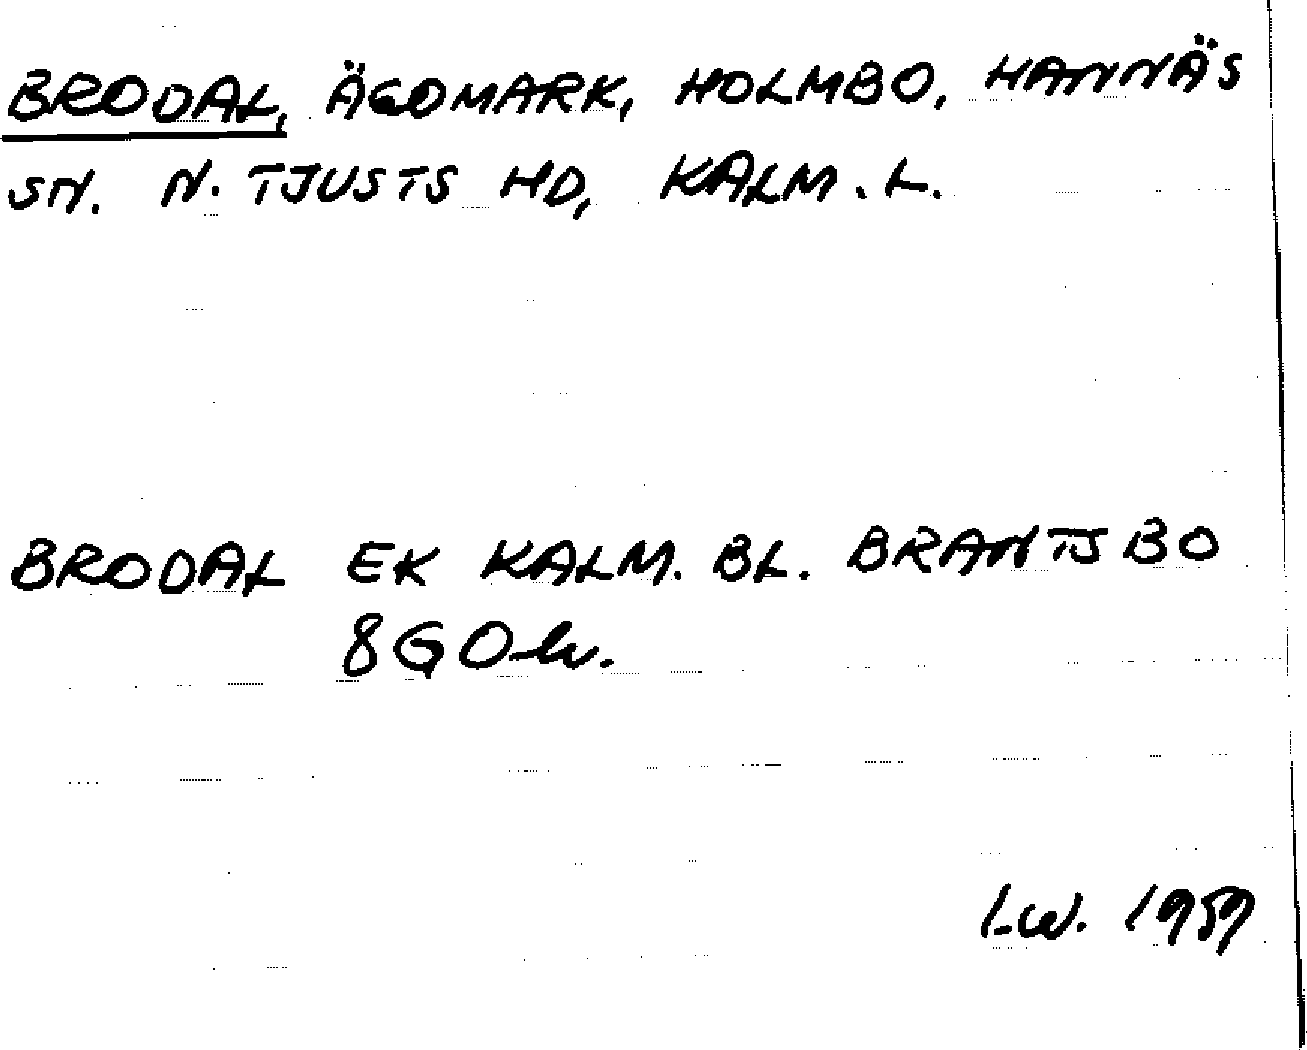 BRODAL, ÄGOMARK, HOLMBO, HANNÄS
SN. N. TJUSTS HD, KALM. L.
BRODAL EK KALM. BL. BRANTSBO
8G0h.
I.W. 1959